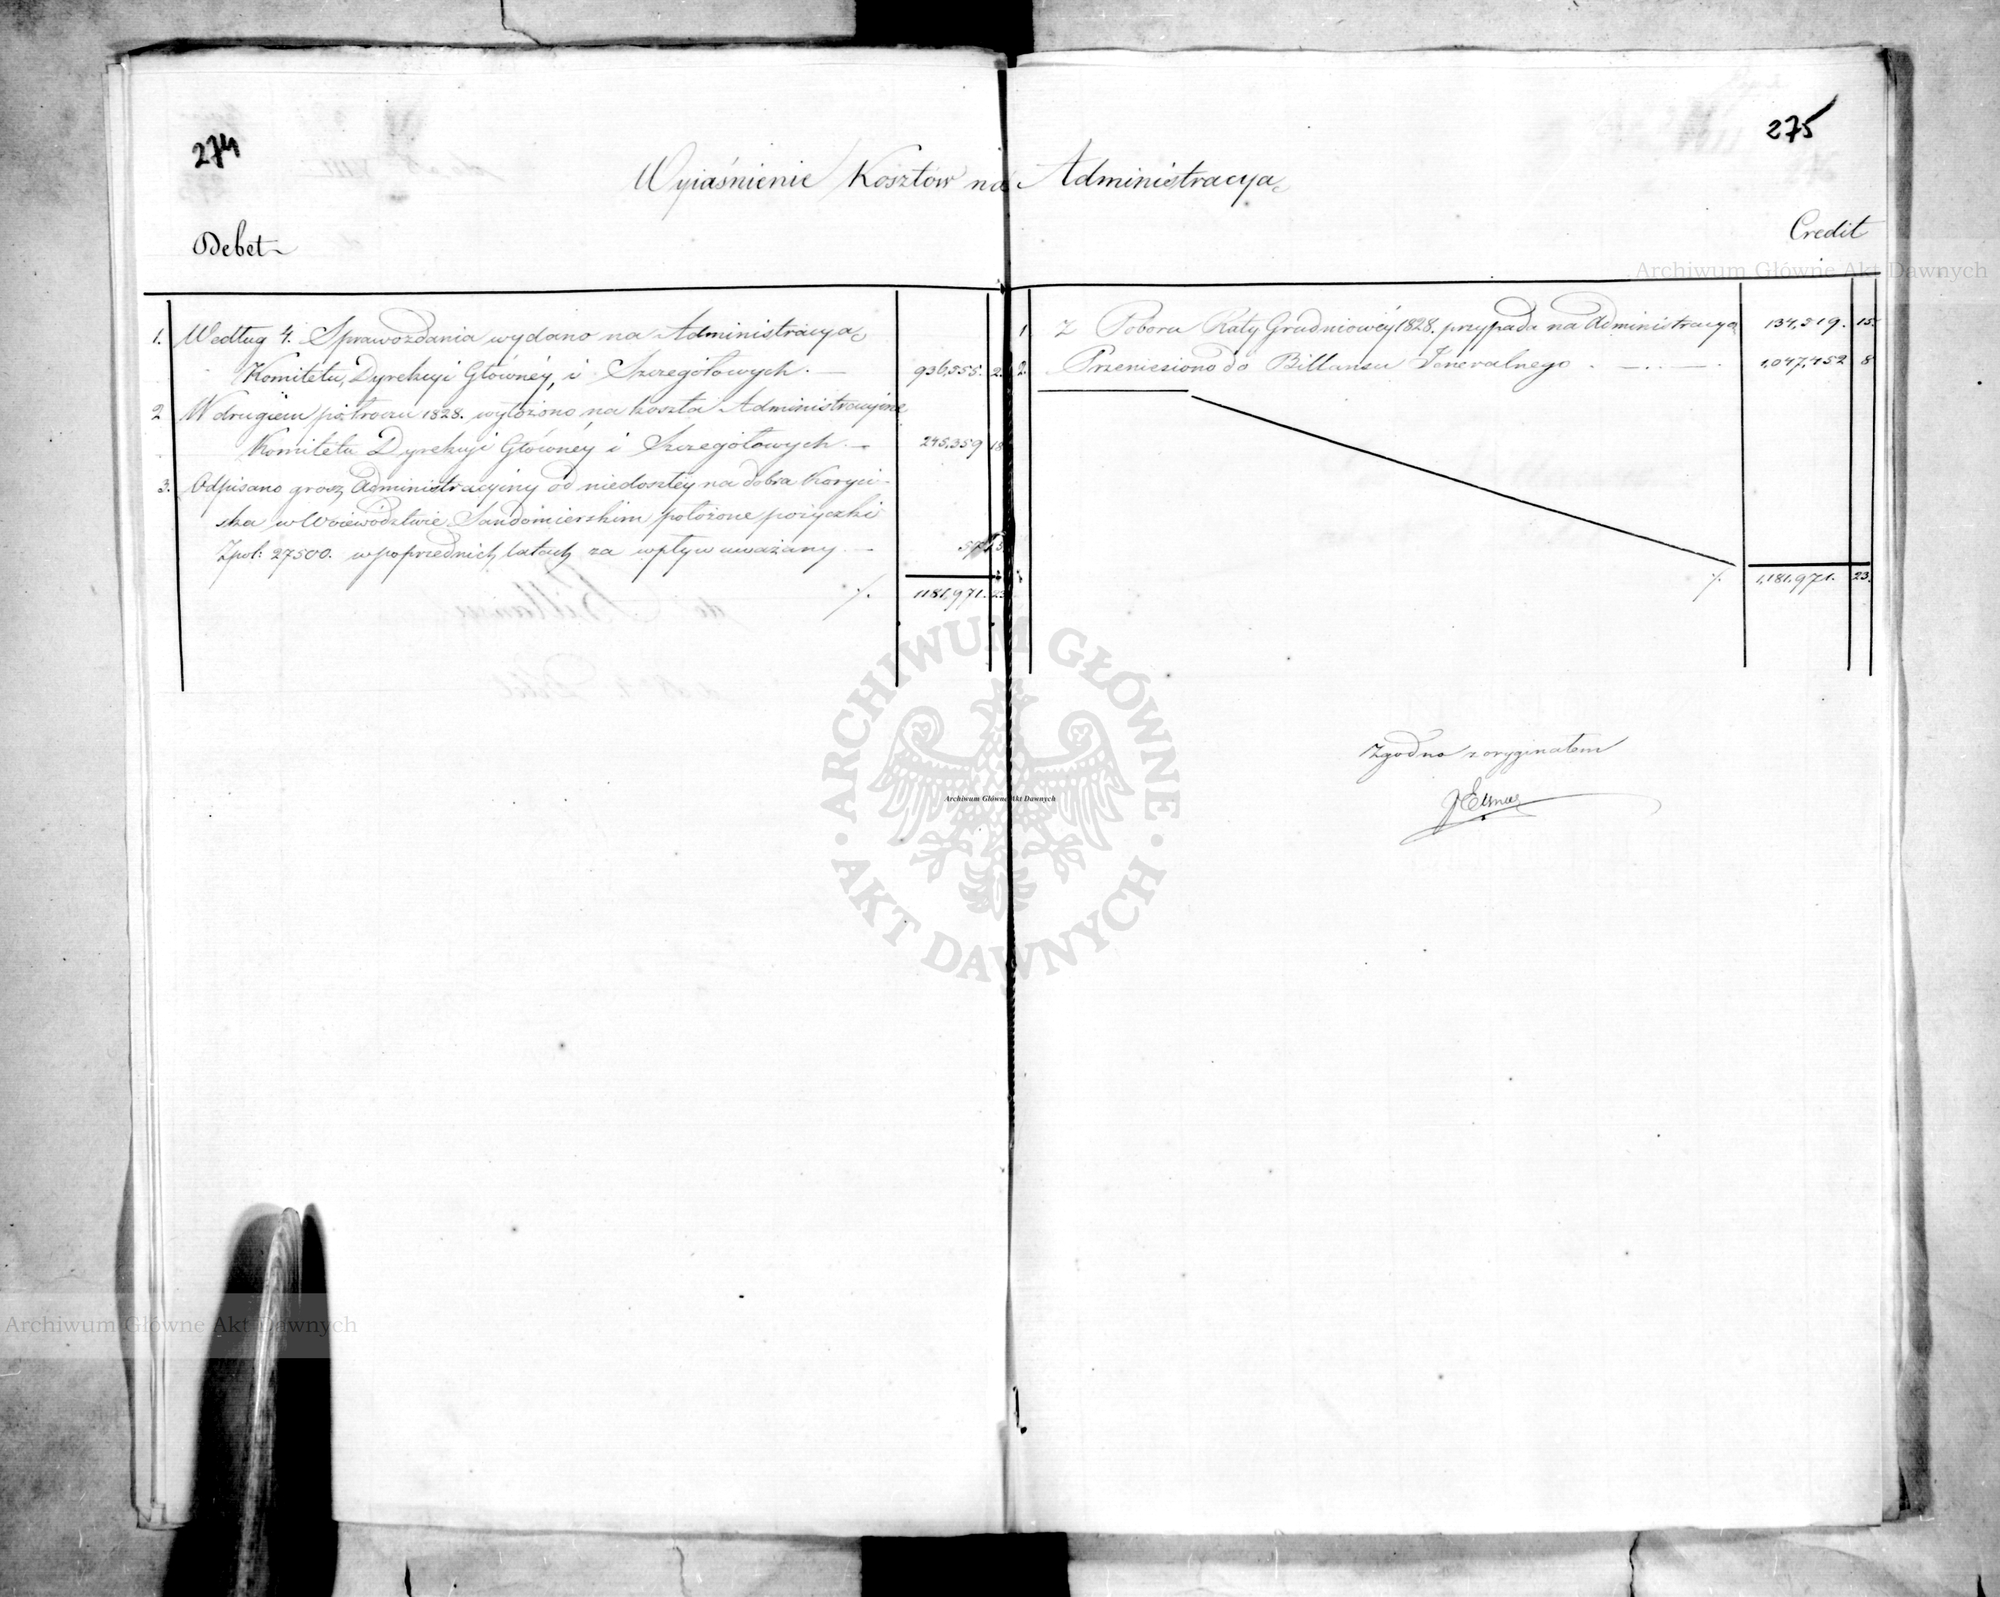 274
275
Wyjaśnienie Kosztów na Administracyą
Debet
Credit
1. Według 4. Sprawozdania wydano na Administracyą
Komitetu, Dyrekcyi Główney, i Szczegółowych. — 936,555. 2.
2 W drugiem półroczu 1828. wyłożono na koszta Administracyine
Komitetu Dyrekcyi Główney i Szczegółowych. — 245,359 18
3. Odpisano grosz Administracyiny od niedoszłey na dobra Koryci-
ska w Województwie Sandomierskim położone pożyczki
Zpol: 27500. w poprzednich latach za wpływ uważany. — 57
/. 1181,971. 23
1 Z Poboru Raty Grudniowéy 1828. przypada na Administracyą 134,519. 15.
2. Przeniesiono do Billansu Generalnego . — . . — . 1,047,452 8
/. 1,181,971. 23.
Zgodno z oryginałem
Archiwum Główne Akt Dawnych
ARCHIWUM GŁÓWNE · AKT DAWNYCH ·
Archiwum Główne Akt Dawnych
Archiwum Główne Akt Dawnych